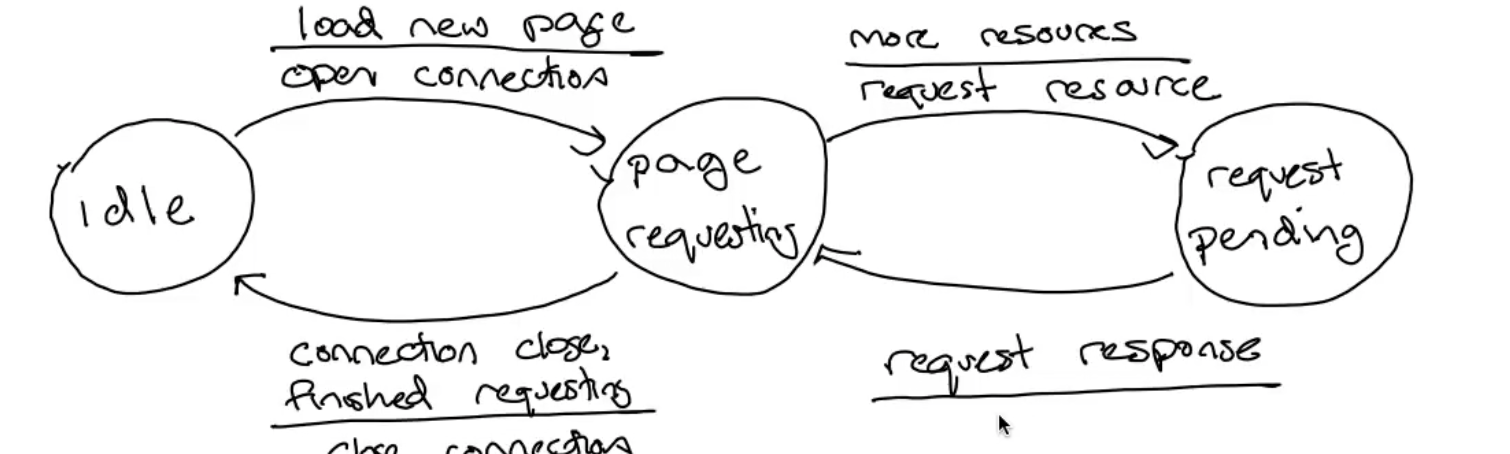 load new page
open connection
more resources
request resource
idle
page
requesting
request
pending
connection close,
finished requesting
close connection
request response